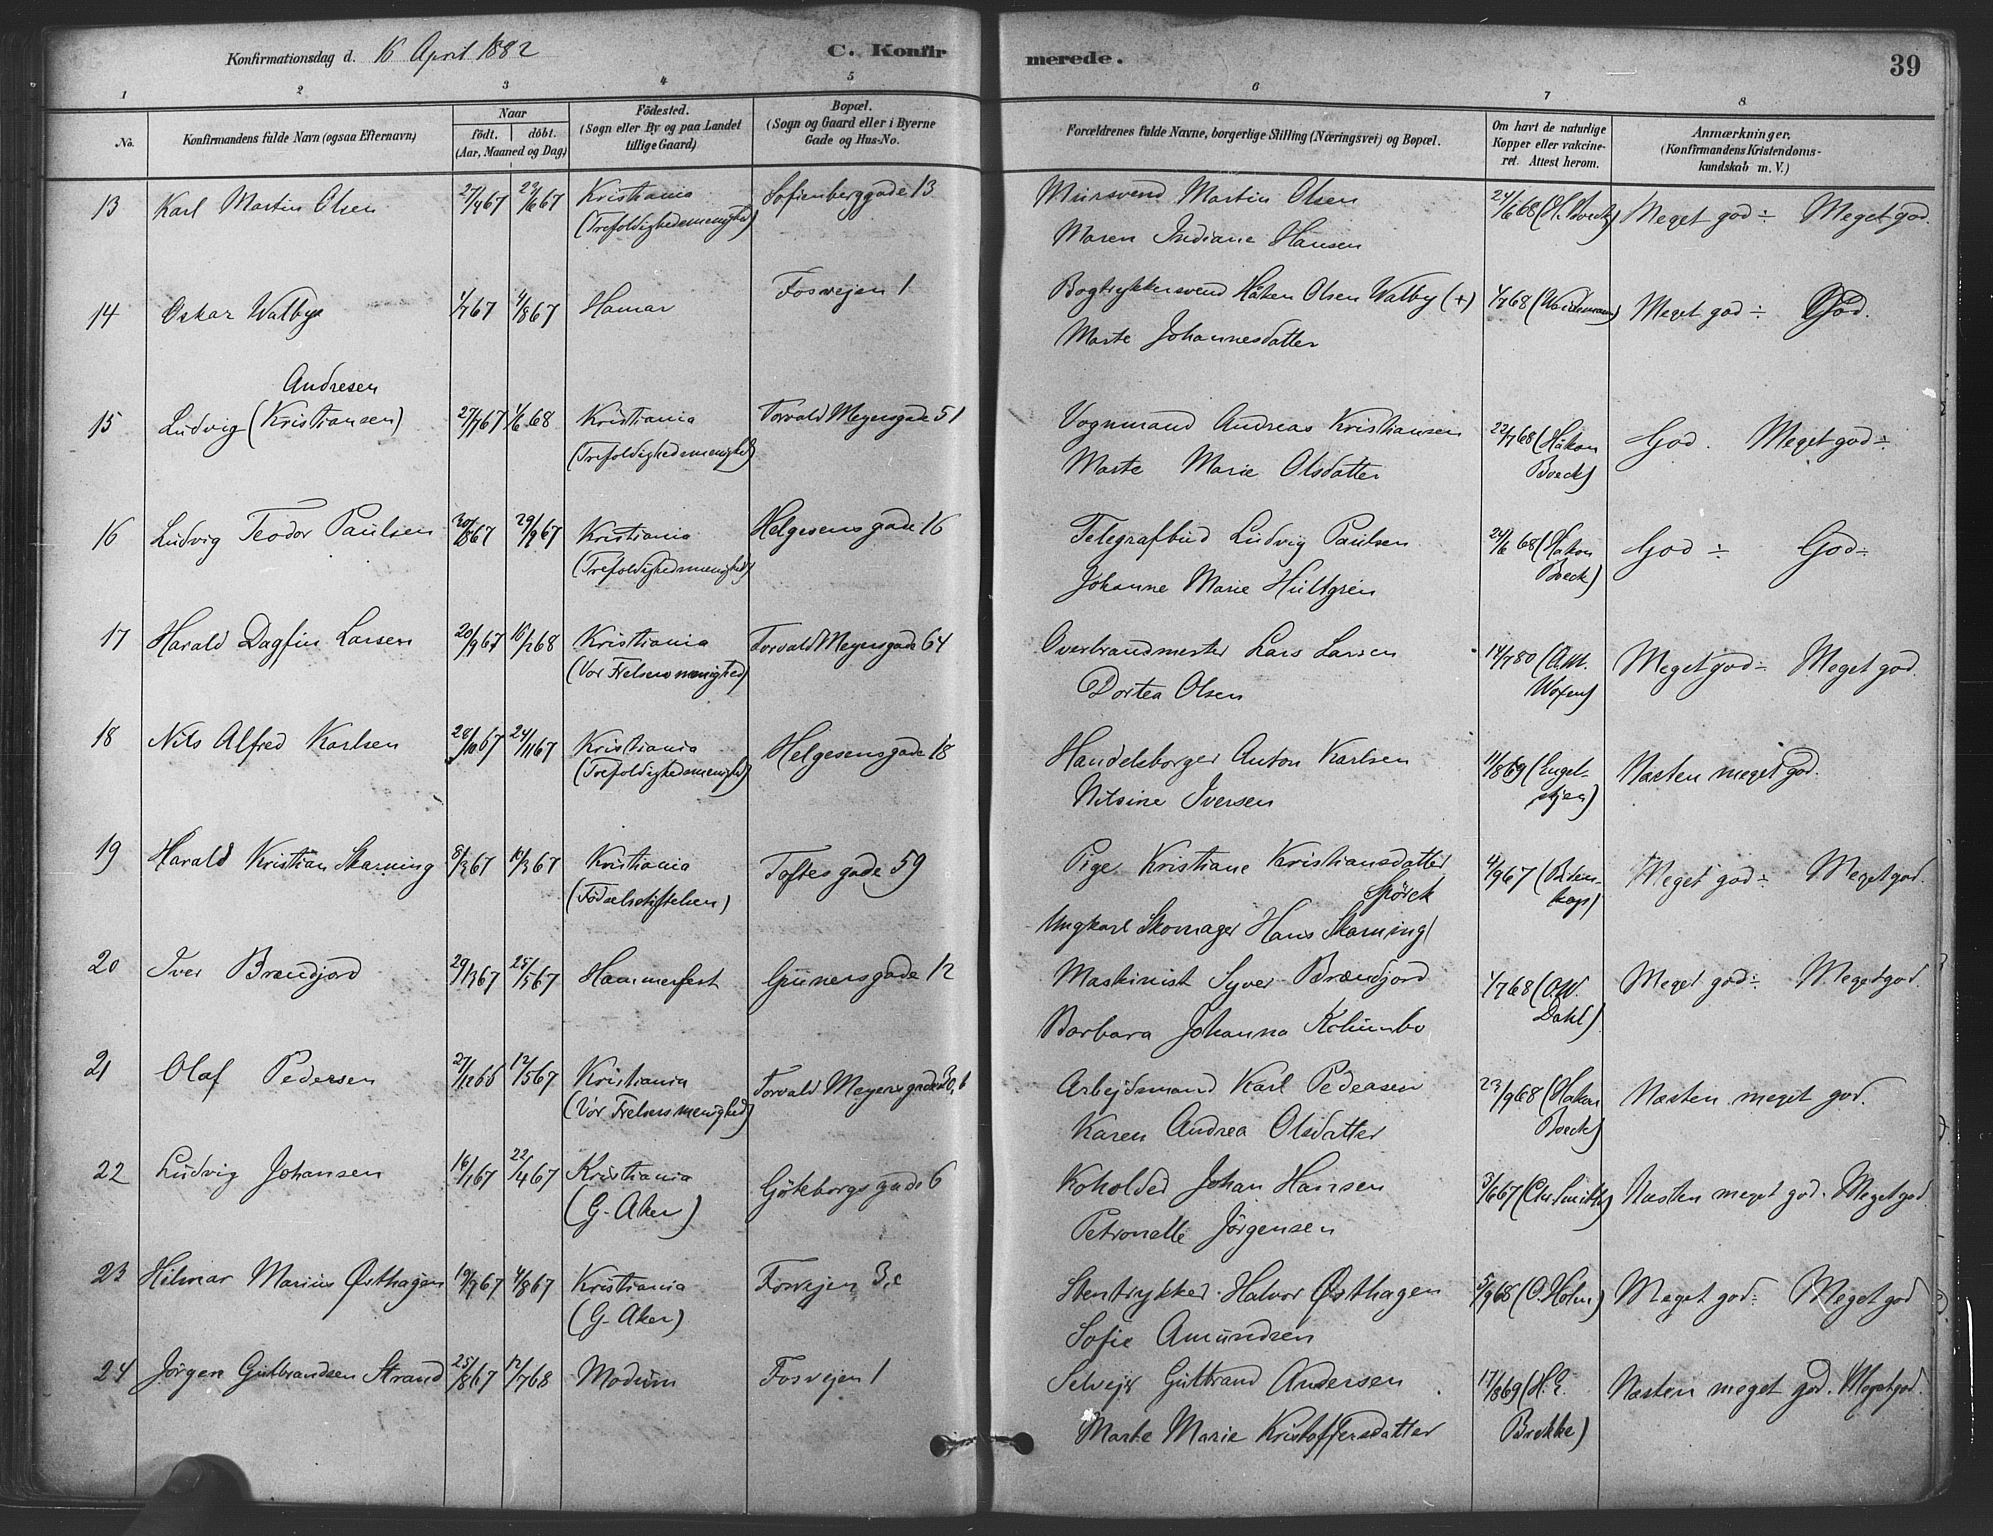 Konfirmationsdag d. 16 April 1882
C. Konfirmerede.
39
1 2 3 4 5 6 7 8
No.
Konfirmandens fulde Navn (ogsaa Efternavn)
Naar
födt. döbt.
(Aar, Maaned og Dag)
Födested.
(Sogn eller By og paa Landet
tillige Gaard)
Bopæl.
(Sogn og Gaard eller i Byerne
Gade og Hus-No.
Forældrenes fulde Navne, borgerlige Stilling (Næringsvei) og Bopæl.
Om havt de naturlige
Kopper eller vakcine-
ret. Attest herom.
Anmærkninger,
(Konfirmandens Kristendoms-
kundskab m. V.)
13 Karl Martin Olsen 27/4 67 23/6 67 Kristiania Sofienberggade 13 Muursvend Martin Olsen 24/6 68 Meget god ÷ Meget god.
(Trefoldighedsmenighed) Maren Indiane Hansen
14 Oskar Walbye 1/7 67 4/8 67 Hamar Fosvejen 1 Bogtrykkersvend Håken Olsen Walby (+) 1/7 68 Meget god ÷ God.
Marte Johannesdatter
Andresen
15 Ludvig (Kristiansen) 27/7 67 1/6 68 Kristiania Torvald Meyersgade 51 Vognmand Andreas Kristiansen 22/7 68 (Håkon God. Meget god ÷
(Trefoldighedsmenighed) Marte Marie Olsdatter Boeck)
16 Ludvig Teodor Paulsen 20/8 67 29/9 67 Kristiania Helgesens gade 16 Telegrafbud Ludvig Paulsen 24/6 68 (Håkon God ÷ God ÷
(Trefoldighedsmenighed) Johanne Marie Hultgren Boeck)
17 Harald Dagfin Larsen 20/9 67 16/2 68 Kristiania Torvald Meyersgade 64 Overbrandmester Lars Larsen 14/7 80 (O.M. Meget god ÷ Meget god.
(Vor Frelsers menighed) Dortea Olsen Woxen)
18 Nils Alfred Karlsen 28/10 67 24/11 67 Kristiania Helgesensgade 18 Handelsborger Anton Karlsen 11/8 69 (Engel- Næsten meget god.
(Trefoldighedsmenighed) Nilsine Iversen skjøn)
19 Harald Kristian Skarning 8/3 67 10/3 67 Kristiania Toftes gade 59 Pige Kristiane Kristiansdatter 4/9 67 Meget god ÷ Meget god.
(Födselsstiftelsen) Spörck
Ungkarl Skomager Hans Skarning
20 Iver Brændjord 29/3 67 25/5 67 Hammerfest Grünersgade 12 Maskinist Syver Brændjord 1/7 68 (O.W. Meget god ÷ Meget god.
Barbara Johanna Kolumbo Dahl)
21 Olaf Pedersen 27/12 66 12/5 67 Kristiania Torvald Meyers gade 30, b Arbejdsmand Karl Pedersen 23/9 68 (Håkon Næsten meget god.
(Vor Frelsers menighed) Karen Andrea Olsdatter Boeck)
22 Ludvig Johansen 16/1 67 22/4 67 Kristiania Göteborgs gade 6 Koholder Johan Hansen 3/6 67 (Chr. Smith) Næsten meget god. Meget god
(G. Aker) Petronelle Jörgensen
23 Hilmar Marius Østhagen 4/8 67 Kristiania Fosvejen 3,c Stentrykker Halvor Østhagen 5/9 68 (O. Holm) Meget god ÷ Meget god
(G. Aker) Sofie Amundsen
24 Jörgen Gulbrandsen Strand 25/8 67 12/7 68 Modum Fosvejen 1 Selvejer Gulbrand Andersen 17/8 69 (H.E. Næsten meget god. Meget god.
Marte Marie Kristoffersdatter Brekke)